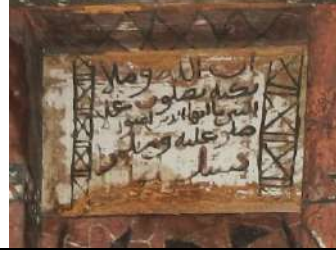 ان الله وملا
ئكته يصلون على
النبي يا ايها الذين امنوا
صلو عليه وسلمو
تسليما